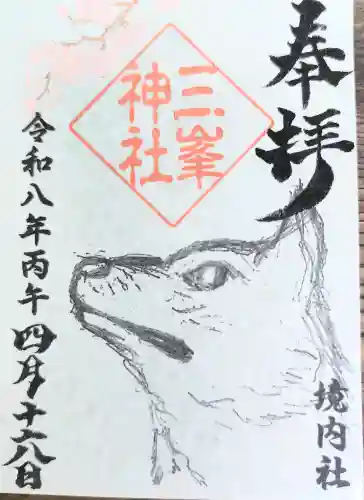 奉拝
三峯
神社
境内社
令和八年丙午四月十六日